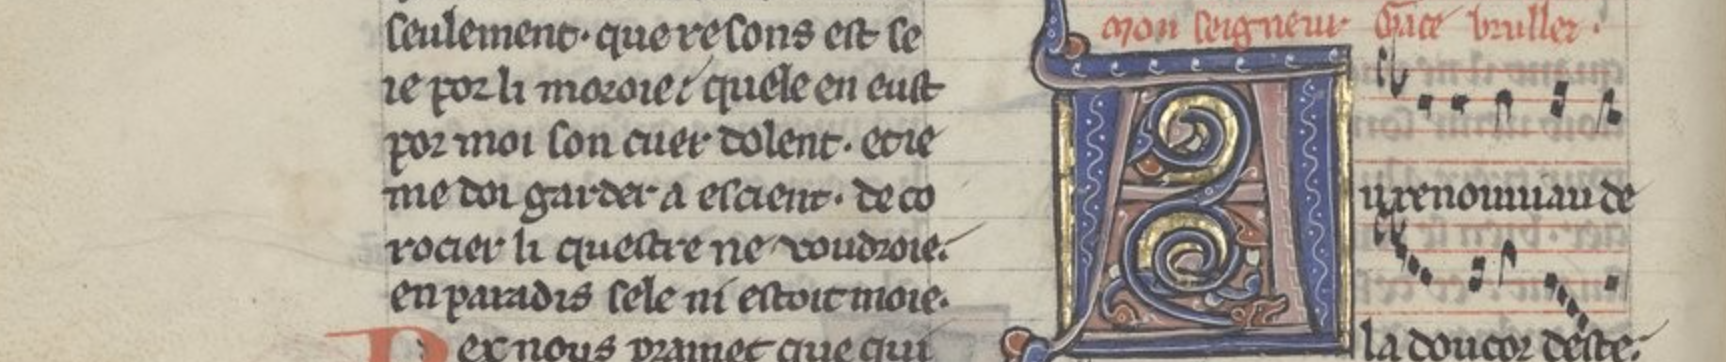 seulement. que resons est se
ie por li moroie; quele en eust
por moi son cuer dolent. et ie
me doi garder a escient. de co
rocier li questre ne voudroie.
en paradis sele ni estoit moie.
Dex nous pramet que qui
mon seigneur Gace bruller.
Au renouuiau de
la doucor deste